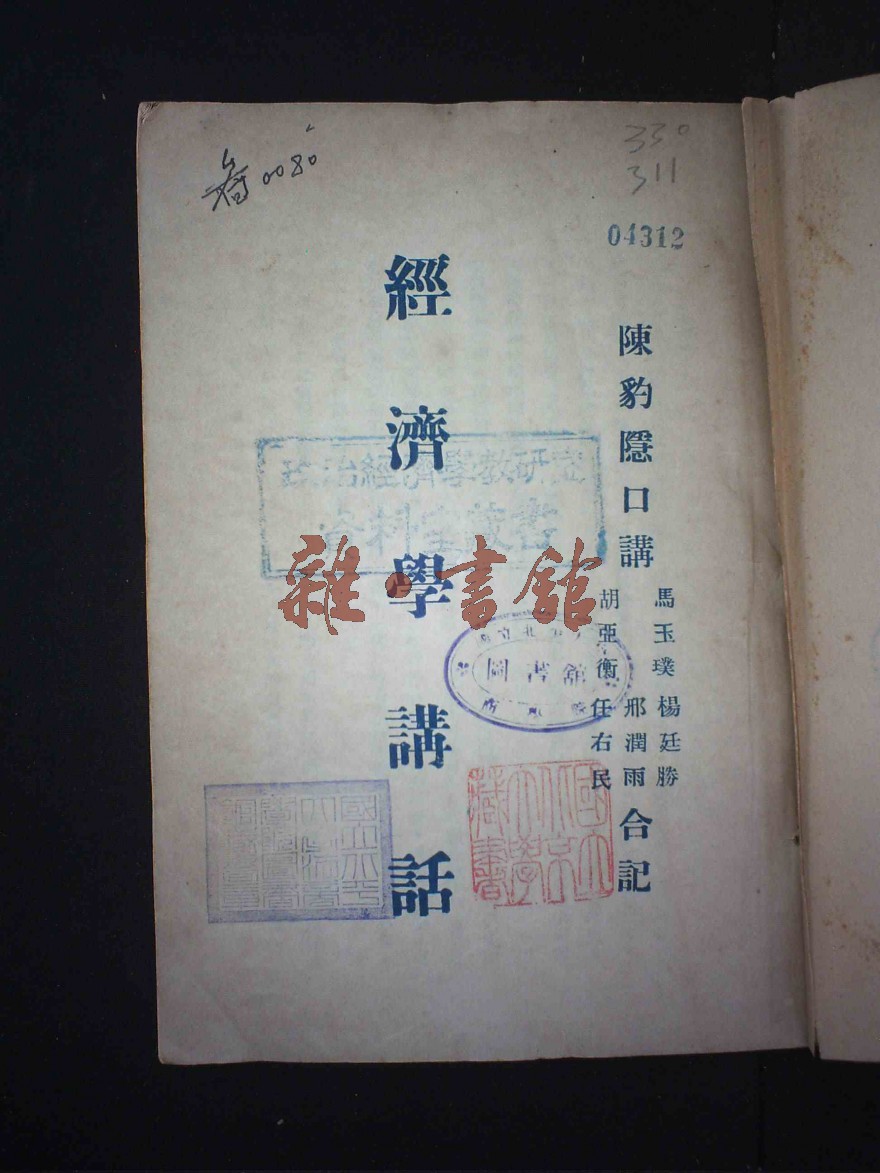 0080
330
311
04312
陳豹隱口講
馬玉璞 楊廷勝
邢潤雨
胡亞衡 任右民
合記
經濟學講話
政治經濟學教研室
資料室藏書
圖書館
國立北京大學藏書
雜·書館